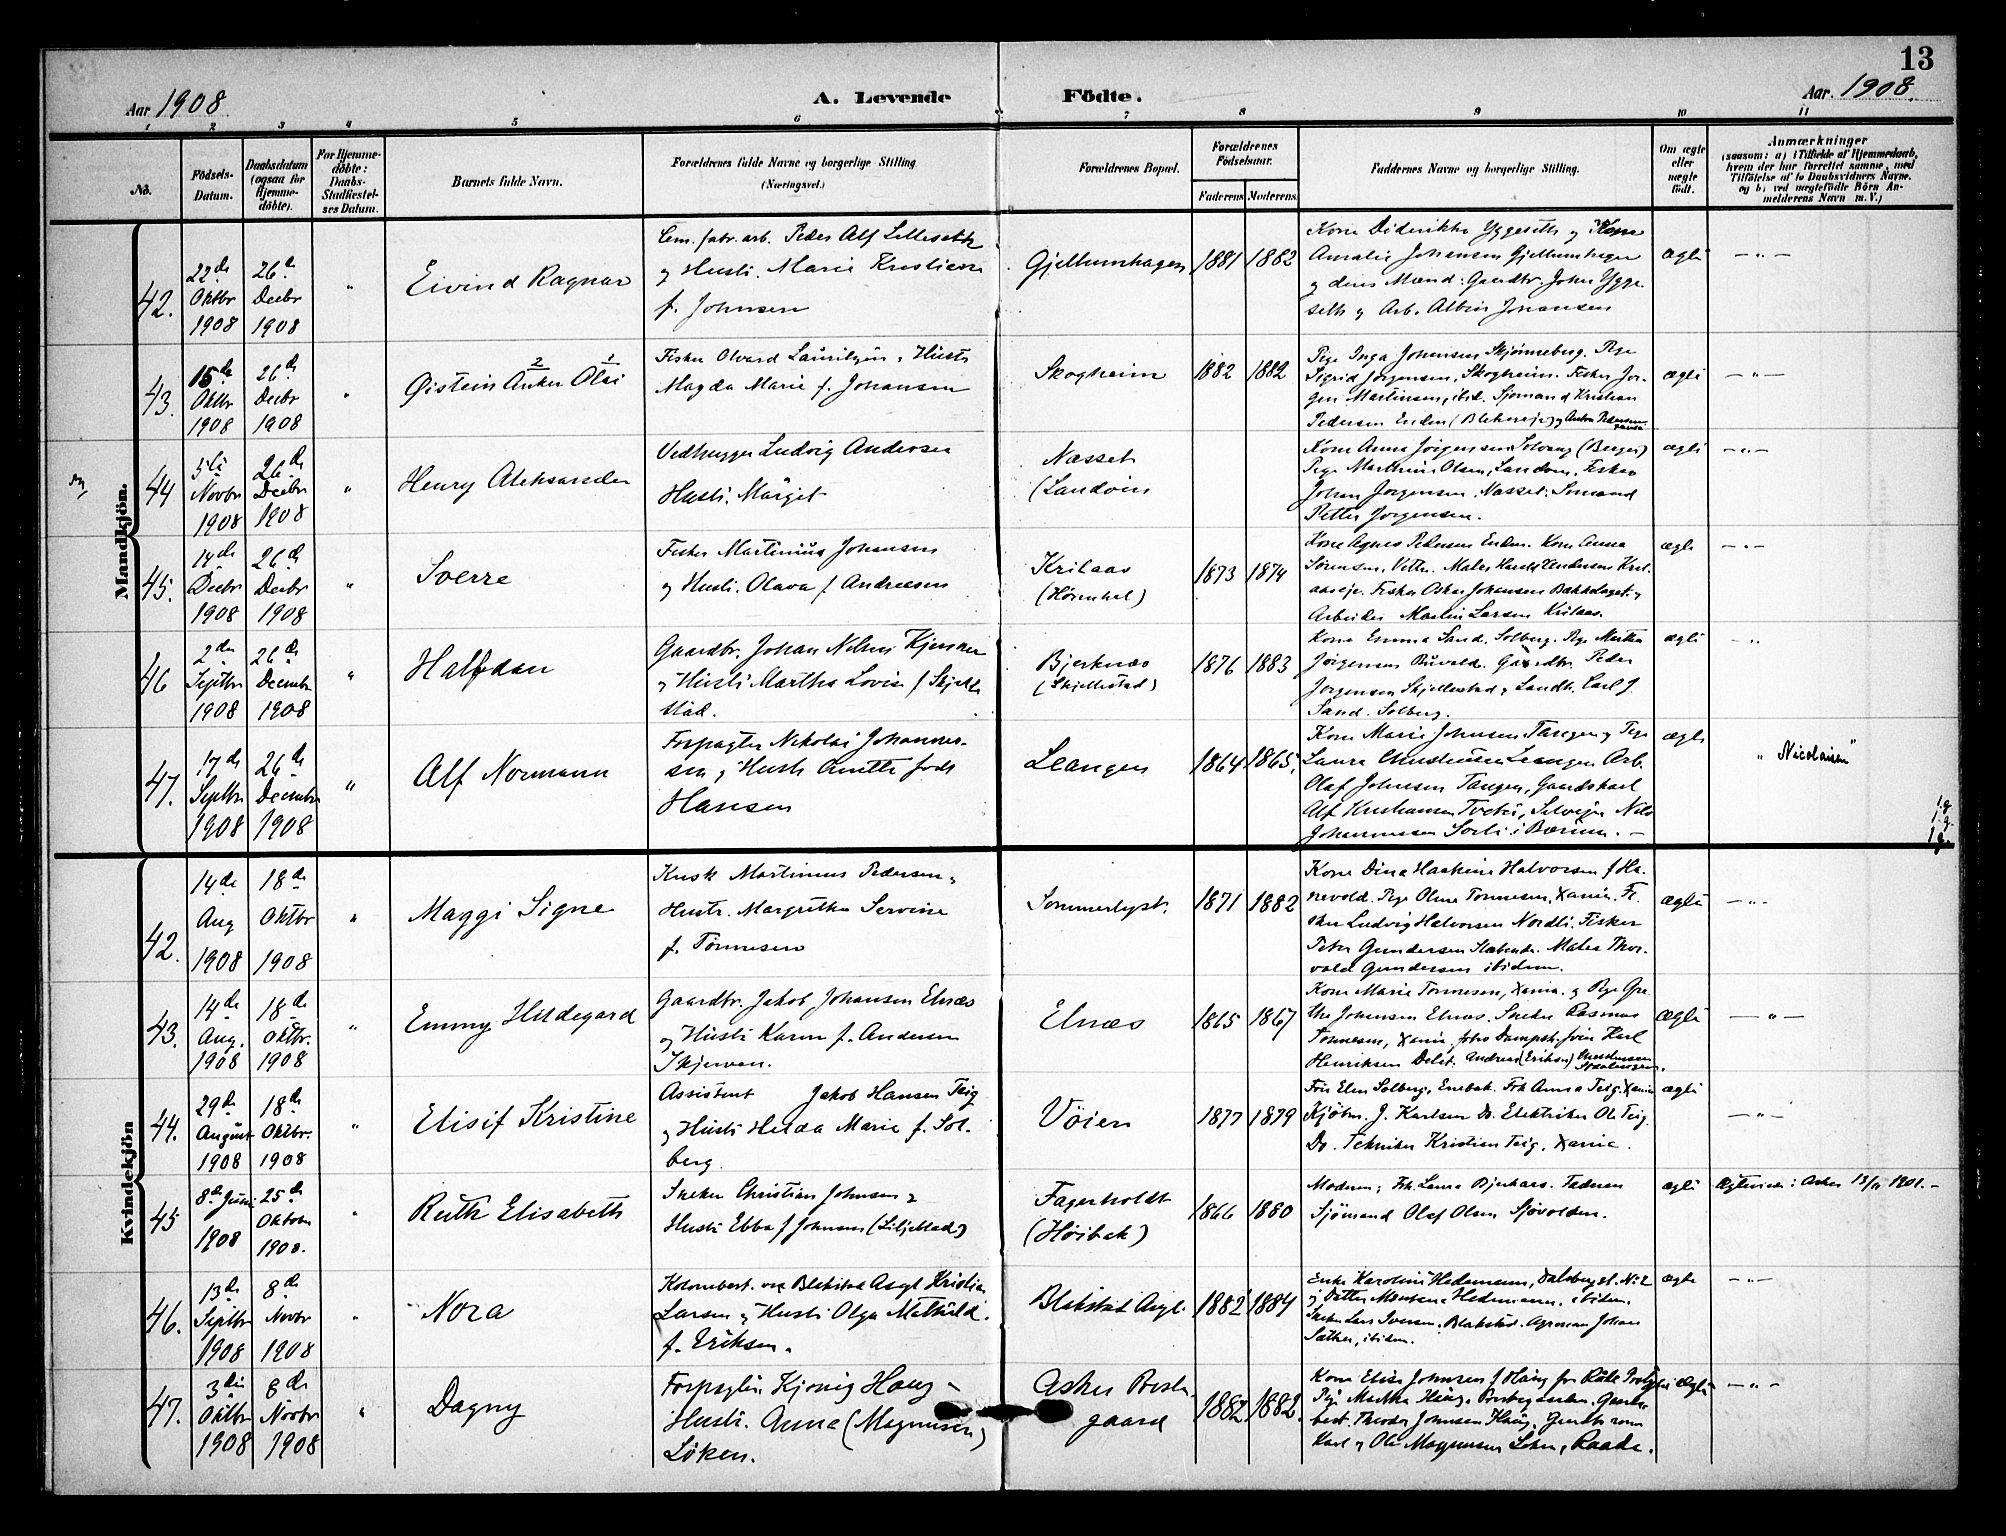 13
Aar 1908
A. Levende Födte.
Aar. 1908.
1 2 3 4 5 6 7 8 9 10 11
No.
Födsels-Datum.
Daabsdatum (ogsaa for Hjemme-döbte).
For Hjemme-döbte: Daabs-Stadfæstel-ses Datum.
Barnets fulde Navn.
Forældrenes fulde Navne og borgerlige Stilling. (Næringsvei.)
Forældrenes Bopæl.
Forældrenes Födselsaar.
Faderens Moderens.
Faddernes Navne og borgerlige Stilling.
Om ægte eller uægte födt.
Anmærkninger
(saasom: a) i Tilfælde af Hjemmedaab,
hvem der har forrettet samme, med
Tilföielse af to Daabsvidners Navne.
og b) ved uægtefödte Börn An-
melderens Navn m. V.)
Mandkjön.
42. 22de Oktbr 1908
26de Decbr 1908
"
Eivind Ragnar
Cem. fabr. arb. Peder Alf Lilleseth
og Hustr. Marie Kristiane
f. Johnsen
Gjellumhagen
1881 1882
Kone Diderikke Yggeseth og Kone
Amalie Johansen Gjellumhagen
og deres Mænd: Gaardbr. Johan Ygge
seth og Arb. Albin Johansen
ægte
— " —
43. 15de Oktbr 1908
26de Decbr 1908
"
Øistein Anker Olai
2 1
Fisker Olvard Lauritzen, Hustr
Magda Marie f. Johansen
Skogheim
1882 1882
Pige Inga Johansen Skjønneberg. Pige
Sigrid Jörgensen, Skogheim. Fisker Jör-
gen Martinsen, ibid. Sjömand Kristian
Pedersen Enden (Blekereje) og Andra Pedersen
ægte
— " —
44 5te Novbr 1908
26de Decbr 1908
"
Henry Aleksander
Vedhugger Ludvig Andersen
Hustr. Marget
Næsset
(Landöin
Kone Anna Jörgensen Solvang (Berger)
Pige Marthine Olsen, Landöen. Fisker
Johan Jorgensen. Næsset. Sömand
Petter Jorgensen.
ægte
— " —
45. 14de Decbr 1908
26de Decbr 1908
"
Sverre
Fisker Martinius Johansen
og Hustr. Olava f Andreasen
Krilaas
1873 1874
Kone Agnes Pedersen Enden. Kone Anna
Sörensen, Vettre. Maler Harald Andersen Kril-
aaseje. Fisker Oskar Johansen Bakkelaget og
Arbeider Martin Larsen Krilaas.
ægte
— " —
46 2den Septbr 1908
26de Decembr 1908
"
Halfdan
Gaardbr. Johan Nilsen Kjenner
og Hustr Martha Lovise f Skjelle
stad.
Bjerknæs
(Skjellestad)
1876 1883
Kone Emma Sand, Solberg. Pige Martha
Jörgensen Buvold. Gaardbr. Peder
Jorgensen Skjellestad og Landh. Carl J.
Sand. Solberg.
ægte
"
47. 17de Septbr 1908
26de Decembr 1908
"
Alf Normann
Forpagter Nikolai Johannes-
sen og Hustr Anette född
Hansen
Leangen
1864 1865.
Kone Marie Johnsen Tangen og Pige
Laura Christensen Leangen Arb.
Olaf Johnsen Tangen, Gaardskarl
Alf Kristiansen Tveter, Selveier Nils
Johannessen Sorli i Bærum. —
ægte
" Nicolaisen"
Kvindekjön
42. 14de Aug 1908
18de Oktbr 1908
"
Maggi Signe
Kusk Martinius Pedersen og
Hustr. Margrethe Servine
f. Tönnesen
Sommerlyst.
1871 1882
Kone Dina Haakine Halvorsen f Ha-
nevold. Pige Olina Tonnesen, Xania. Fi
sker Ludvig Halvorsen Nordli. Fisker
Peter Gundersen Slæbende. Maler Thor-
vald Gundersen ibidem.
ægte
— " —
43. 14de Aug. 1908
18de Oktbr. 1908
"
Emmy Hildegard
Gaardbr. Jakob Johansen Elnæs
og Hustr Karen f. Andersen
Skjerven.
Elnæs
1865 1867
Kone Marie Tonnesen, Xania. og Pige Gre
the Johansen Elnæs. Snekker Rasmus
Tönnesen, Xania.
ægte
— " —
44. 29de August 1908
18de Oktbr. 1908
"
Elisif Kristine
Assistent Jakob Hansen Teig
og Hustr Hilda Marie f. Sol-
berg.
Vöien
1877 1879
Frü Elen Solberg, Enebak. Frk Anna Teig. Xania
Kjöbm. J. Karlsen Do. Elektriker Ole Teig.
Do. Tekniker Kristian Teig, Xania.
ægte
— " —
45 8de Juni 1908
25de Oktober 1908.
"
Ruth Elisabeth
Snekker Christian Johnsen og
Hustr Ebba f Johnson (Liljestad)
Fagerholdt
(Höibak)
1866 1880
Moderen; Frk Laura Bjerkaas. Faderen
Sjömand Olaf Olsen Sjövolden.
ægte
Ægteviede: Asker 1901.—
46. 13de Septbr 1908
8de Novbr 1908
"
Nora
Blakstad Asyl Kristian
Larsen og Hustr Olga Mathilde
f. Eriksen.
Blakstad Asyl.
1882 1884
Enke Karoline Hedemann, Dalsberg st. No 2
Hedemann. ibidem.
Snekker Lars Iversen. Blakstad. Agronom Johan
Sæther, ibidem.
ægte
— " —
47. 3die Oktbr 1908
8de Novbr 1908
"
Dagny
Forpagter Kjönig Haug og
Hustr. Anna (Magnusen)
Löken.
Asker Præste-
gaard
1882 1882.
Kone Elise Johnsen f Haug
Pige Martha Haug,
Theodor Johnsen Haug,
Karl og Ole Magnusen Löken, Raade.
Ægte
— " —